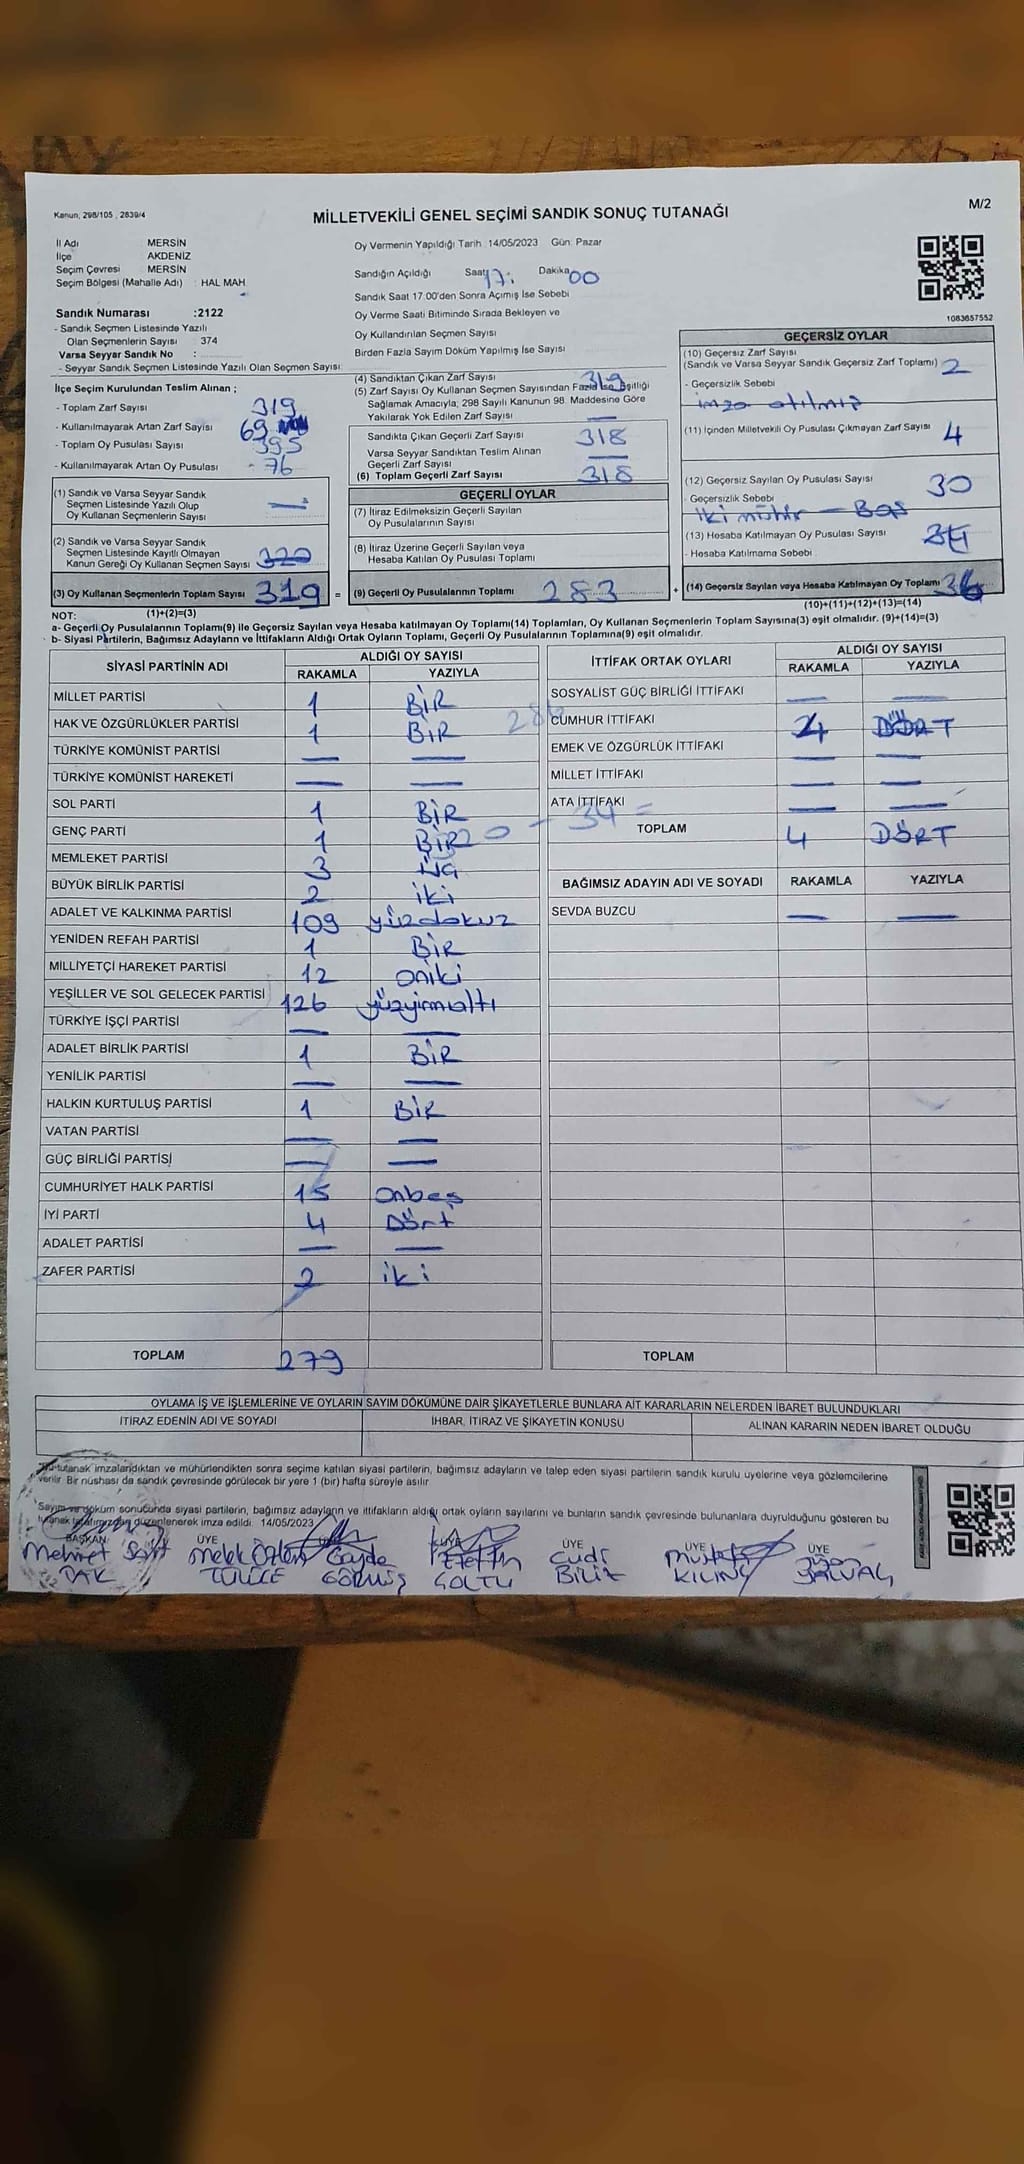 Kanun, 298/105 , 2839/4
MİLLETVEKİLİ GENEL SEÇİMİ SANDIK SONUÇ TUTANAĞI
M/2
İl Adı MERSİN
İlçe AKDENİZ
Seçim Çevresi MERSİN
Seçim Bölgesi (Mahalle Adı) : HAL MAH.
Oy Vermenin Yapıldığı Tarih : 14/05/2023 Gün: Pazar
Sandığın Açıldığı Saat 17: Dakika 00
Sandık Saat 17:00'den Sonra Açımış İse Sebebi
Oy Verme Saati Bitiminde Sırada Bekleyen ve
Oy Kullandırılan Seçmen Sayısı
Birden Fazla Sayım Döküm Yapılmış İse Sayısı
1083657552
Sandık Numarası :2122
- Sandık Seçmen Listesinde Yazılı
Olan Seçmenlerin Sayısı 374
Varsa Seyyar Sandık No :
- Seyyar Sandık Seçmen Listesinde Yazılı Olan Seçmen Sayısı:
İlçe Seçim Kurulundan Teslim Alınan ;
- Toplam Zarf Sayısı 319
- Kullanılmayarak Artan Zarf Sayısı 69
- Toplam Oy Pusulası Sayısı 395
- Kullanılmayarak Artan Oy Pusulası - 76
(1) Sandık ve Varsa Seyyar Sandık
Seçmen Listesinde Yazılı Olup
Oy Kullanan Seçmenlerin Sayısı —
(2) Sandık ve Varsa Seyyar Sandık
Seçmen Listesinde Kayıtlı Olmayan
Kanun Gereği Oy Kullanan Seçmen Sayısı 320
(3) Oy Kullanan Seçmenlerin Toplam Sayısı 319 =
(1)+(2)=(3)
(4) Sandıktan Çıkan Zarf Sayısı 319
(5) Zarf Sayısı Oy Kullanan Seçmen Sayısından Fazla İse Eşitliği
Sağlamak Amacıyla; 298 Sayılı Kanunun 98. Maddesine Göre
Yakılarak Yok Edilen Zarf Sayısı —
Sandıkta Çıkan Geçerli Zarf Sayısı 318
Varsa Seyyar Sandıktan Teslim Alınan
Geçerli Zarf Sayısı —
(6) Toplam Geçerli Zarf Sayısı 318
GEÇERLİ OYLAR
(7) İtiraz Edilmeksizin Geçerli Sayılan
Oy Pusulalarının Sayısı
(8) İtiraz Üzerine Geçerli Sayılan veya
Hesaba Katılan Oy Pusulası Toplamı
(9) Geçerli Oy Pusulalarının Toplamı 283 +
GEÇERSİZ OYLAR
(10) Geçersiz Zarf Sayısı
(Sandık ve Varsa Seyyar Sandık Geçersiz Zarf Toplamı) 2
- Geçersizlik Sebebi
imza atılmış
(11) İçinden Milletvekili Oy Pusulası Çıkmayan Zarf Sayısı 4
(12) Geçersiz Sayılan Oy Pusulası Sayısı 30
- Geçersizlik Sebebi
iki mühür — Boş
(13) Hesaba Katılmayan Oy Pusulası Sayısı
- Hesaba Katılmama Sebebi
(14) Geçersiz Sayılan veya Hesaba Katılmayan Oy Toplamı 36
(10)+(11)+(12)+(13)=(14)
NOT:
a- Geçerli Oy Pusulalarının Toplamı(9) ile Geçersiz Sayılan veya Hesaba katılmayan Oy Toplamı(14) Toplamları, Oy Kullanan Seçmenlerin Toplam Sayısına(3) eşit olmalıdır. (9)+(14)=(3)
b- Siyasi Partilerin, Bağımsız Adayların ve İttifakların Aldığı Ortak Oyların Toplamı, Geçerli Oy Pusulalarının Toplamına(9) eşit olmalıdır.
SİYASİ PARTİNİN ADI ALDIĞI OY SAYISI
RAKAMLA YAZIYLA
MİLLET PARTİSİ 1 BİR
HAK VE ÖZGÜRLÜKLER PARTİSİ 1 BİR
TÜRKİYE KOMÜNİST PARTİSİ — —
TÜRKİYE KOMÜNİST HAREKETİ — —
SOL PARTİ 1 BİR
GENÇ PARTİ 1 BİR
MEMLEKET PARTİSİ 3 ÜÇ
BÜYÜK BİRLİK PARTİSİ 2 iki
ADALET VE KALKINMA PARTİSİ 109 yüzdokuz
YENİDEN REFAH PARTİSİ 1 BİR
MİLLİYETÇİ HAREKET PARTİSİ 12 oniki
YEŞİLLER VE SOL GELECEK PARTİSİ 126 yüzyirmialtı
TÜRKİYE İŞÇİ PARTİSİ — —
ADALET BİRLİK PARTİSİ 1 BİR
YENİLİK PARTİSİ — —
HALKIN KURTULUŞ PARTİSİ 1 BİR
VATAN PARTİSİ — —
GÜÇ BİRLİĞİ PARTİSİ — —
CUMHURİYET HALK PARTİSİ 15 onbeş
İYİ PARTİ 4 Dört
ADALET PARTİSİ — —
ZAFER PARTİSİ 2 iki
TOPLAM 279
İTTİFAK ORTAK OYLARI ALDIĞI OY SAYISI
RAKAMLA YAZIYLA
SOSYALİST GÜÇ BİRLİĞİ İTTİFAKI — —
CUMHUR İTTİFAKI 4 DÖRT
EMEK VE ÖZGÜRLÜK İTTİFAKI — —
MİLLET İTTİFAKI — —
ATA İTTİFAKI — —
- 34 =
TOPLAM 4 DÖRT
BAĞIMSIZ ADAYIN ADI VE SOYADI RAKAMLA YAZIYLA
SEVDA BUZCU — —
TOPLAM
OYLAMA İŞ VE İŞLEMLERİNE VE OYLARIN SAYIM DÖKÜMÜNE DAİR ŞİKAYETLERLE BUNLARA AİT KARARLARIN NELERDEN İBARET BULUNDUKLARI
İTİRAZ EDENİN ADI VE SOYADI İHBAR, İTİRAZ VE ŞİKAYETİN KONUSU ALINAN KARARIN NEDEN İBARET OLDUĞU
Bu tutanak imzalandıktan ve mühürlendikten sonra seçime katılan siyasi partilerin, bağımsız adayların ve talep eden siyasi partilerin sandık kurulu üyelerine veya gözlemcilerine
verilir. Bir nüshası da sandık çevresinde görülecek bir yere 1 (bir) hafta süreyle asılır.
Sayım ve döküm sonucunda siyasi partilerin, bağımsız adayların ve ittifakların aldığı ortak oyların sayılarını ve bunların sandık çevresinde bulunanlara duyrulduğunu gösteren bu
tutanak tarafımızdan düzenlenerek imza edildi. 14/05/2023
BAŞKAN ÜYE ÜYE ÜYE ÜYE ÜYE
Mehmet Sait Melek Özlem Gayde Cudi Mustafa
TÜLÜCE GÖRMÜŞ GOLTU BİLİZ KILINÇ YALVAÇ